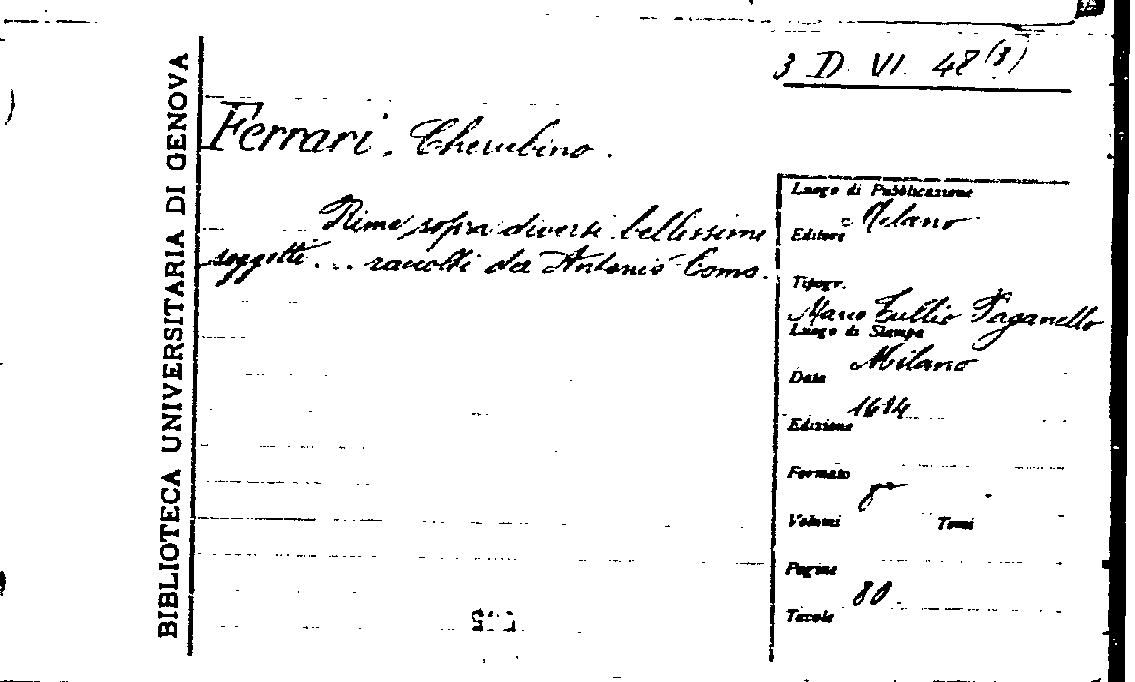 BIBLIOTECA UNIVERSITARIA DI GENOVA
3 D. VI. 48 (3)
Ferrari, Cherubino.
Rime sopra diversi bellissimi
soggetti ... raccolti da Antonio Como.
Luogo di Pubblicazione
Milano
Editore
Tipogr.
Marco Tullio Paganello
Luogo di Stampa
Milano
Data
1614
Edizione
Formato
8°
Volumi Tomi
Pagine
80
Tavole